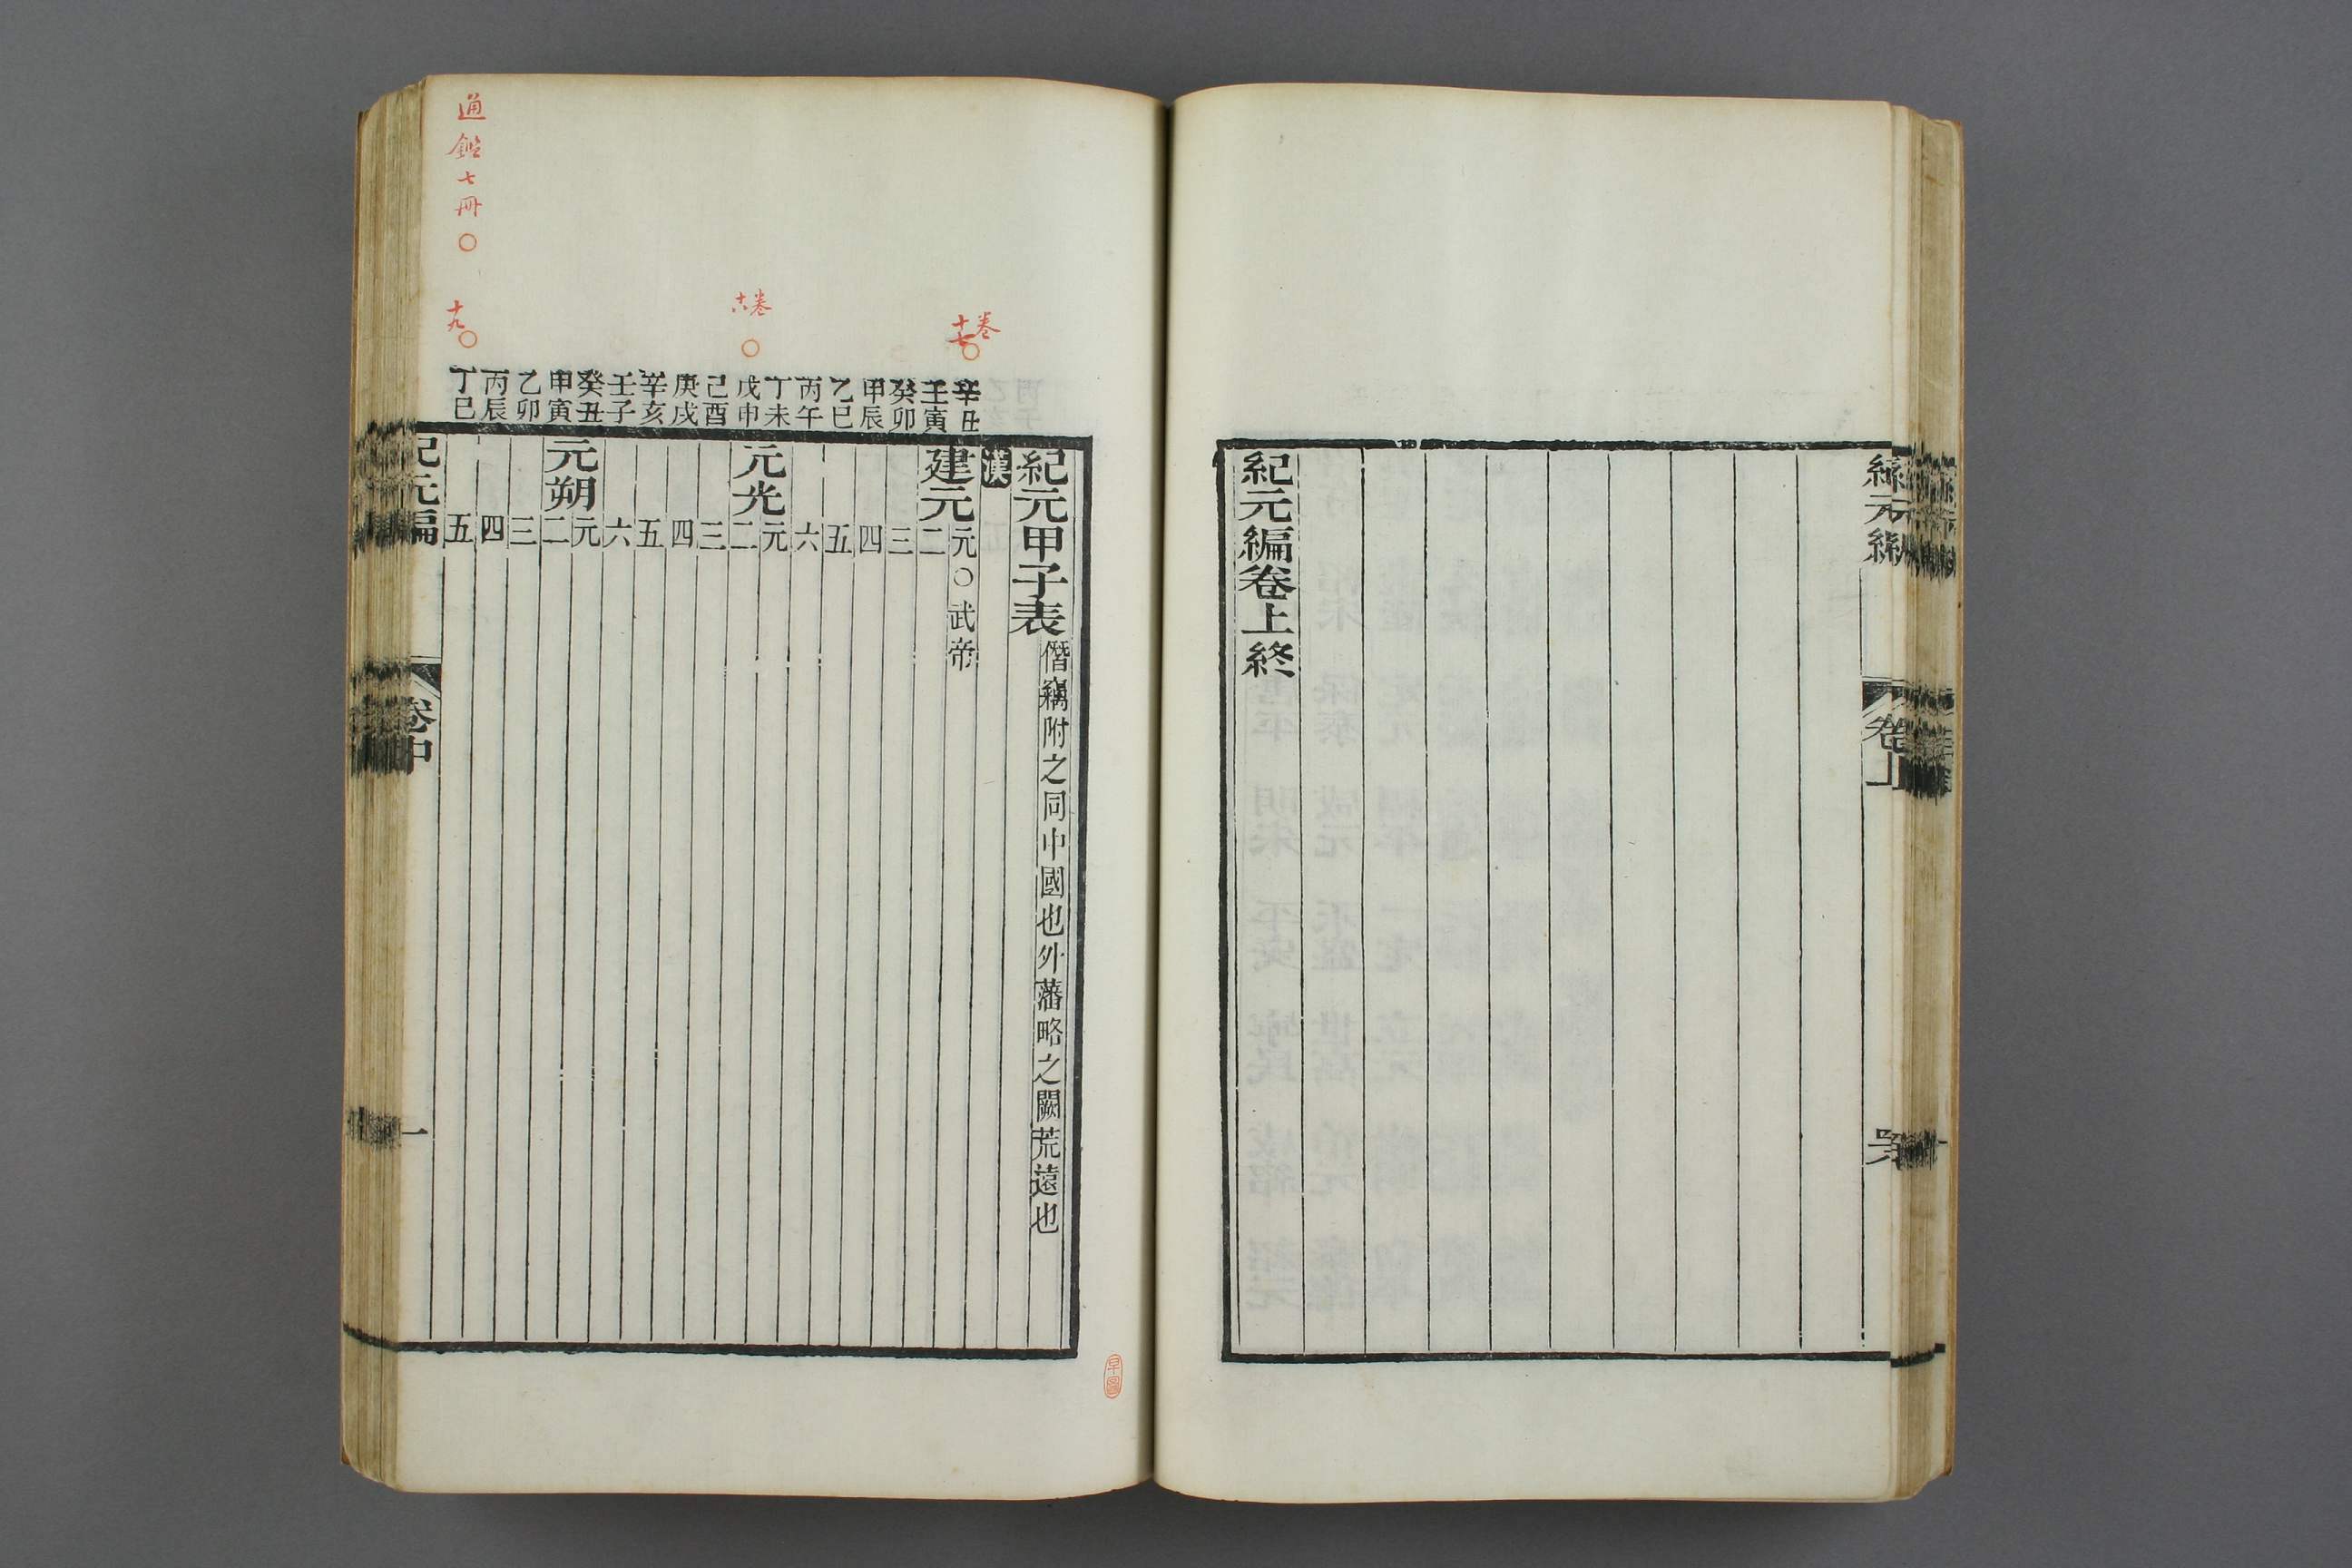 紀元編卷上終
紀元編
卷上
通鑑七冊〇
卷十七〇
卷十八〇
十九〇
辛丑
壬寅
癸卯
甲辰
乙巳
丙午
丁未
戊申
己酉
庚戌
辛亥
壬子
癸丑
甲寅
乙卯
丙辰
丁巳
紀元甲子表 僭竊附之同中國也外藩略之闕荒遠也
漢
建元 元〇武帝
二
三
四
五
六
元光 元
二
三
四
五
六
元朔 元
二
三
四
五
紀元編
卷中
一
早圖